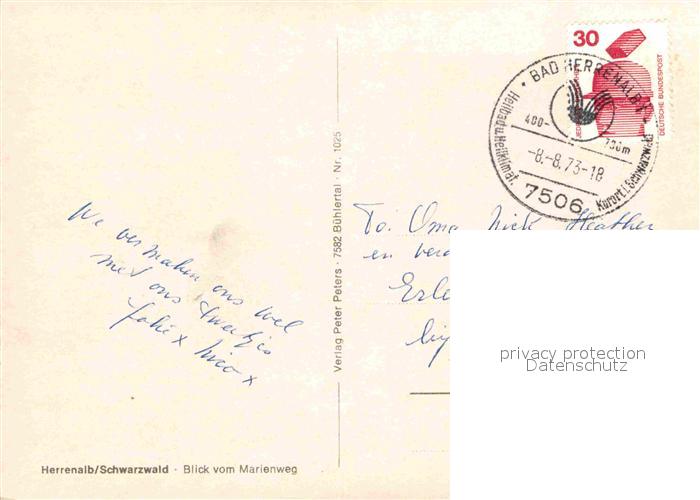 30
DEUTSCHE BUNDESPOST
BAD HERRENALB
400-
700m
-8.-8.73-18
7506
Heilbad u. Heilklimat.
Kurort i. Schwarzwald
We vermaken ons wel
met ons tweetjes
Joke x Nico x
To: Oma, Nick, Heather
en
Erle
Verlag Peter Peters · 7582 Bühlertal · Nr. 1025
privacy protection
Datenschutz
Herrenalb/Schwarzwald · Blick vom Marienweg